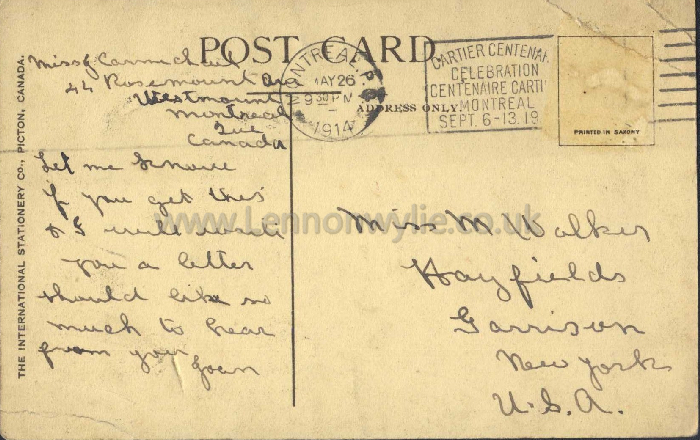 POST CARD
Miss J Carmichael
44 Rosemount Av
Westmount
Montreal
Que
Canada
Let me know
if you get this
& I will write
you a letter
should like so
much to hear
from you
Joan
MONTREAL, P.Q.
MAY 26
9 30 PM
1914
CARTIER CENTENAR
CELEBRATION
CENTENAIRE CARTI
MONTREAL
SEPT. 6-13.19
ADDRESS ONLY
PRINTED IN SAXONY
Miss M Walker
Hayfields
Garrison
New York
U.S.A.
THE INTERNATIONAL STATIONERY CO., PICTON, CANADA.
www.Lennonwylie.co.uk